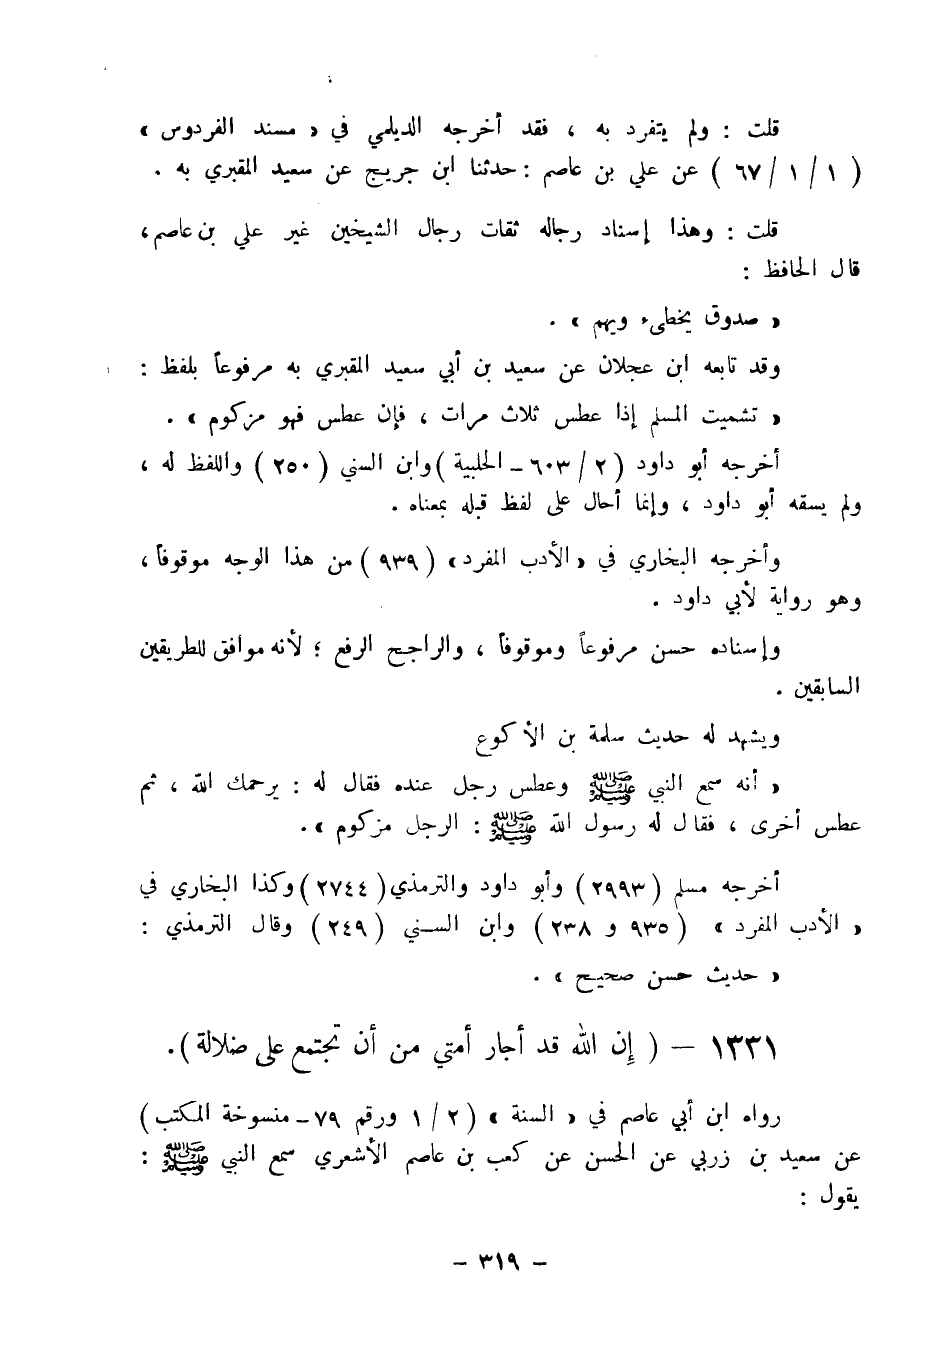 قلت : ولم يتفرد به ، فقد أخرجه الديلمي في « مسند الفردوس »
( ١ / ١ / ٦٧ ) عن علي بن عاصم : حدثنا ابن جريج عن سعيد المقبري به .
قلت : وهذا إسناد رجاله ثقات رجال الشيخين غير علي بن عاصم ،
قال الحافظ :
« صدوق يخطىء ويهم » .
وقد تابعه ابن عجلان عن سعيد بن أبي سعيد المقبري به مرفوعاً بلفظ :
« تشميت المسلم إذا عطس ثلاث مرات ، فإن عطس فهو مزكوم » .
أخرجه أبو داود ( ٢ / ٦٠٣ ـ الحلبية ) وابن السني ( ٢٥٠ ) واللفظ له ،
ولم يسقه أبو داود ، وإنما أحال على لفظ قبله بمعناه .
وأخرجه البخاري في « الأدب المفرد » ( ٩٣٩ ) من هذا الوجه موقوفاً ،
وهو رواية لأبي داود .
وإسناده حسن مرفوعاً وموقوفاً ، والراجح الرفع ؛ لأنه موافق للطريقين
السابقين .
ويشهد له حديث سلمة بن الأكوع
« أنه سمع النبي ﷺ وعطس رجل عنده فقال له : يرحمك الله ، ثم
عطس أخرى ، فقال له رسول الله ﷺ : الرجل مزكوم » .
أخرجه مسلم ( ٢٩٩٣ ) وأبو داود والترمذي ( ٢٧٤٤ ) وكذا البخاري في
« الأدب المفرد » ( ٩٣٥ و ٢٣٨ ) وابن السني ( ٢٤٩ ) وقال الترمذي :
« حديث حسن صحيح » .
١٣٣١ – ( إن الله قد أجار أمتي من أن تجتمع على ضلالة ) .
رواه ابن أبي عاصم في « السنة » ( ٢ / ١ ورقم ٧٩ ـ منسوخة المكتب )
عن سعيد بن زربي عن الحسن عن كعب بن عاصم الأشعري سمع النبي ﷺ :
يقول :
– ٣١٩ –